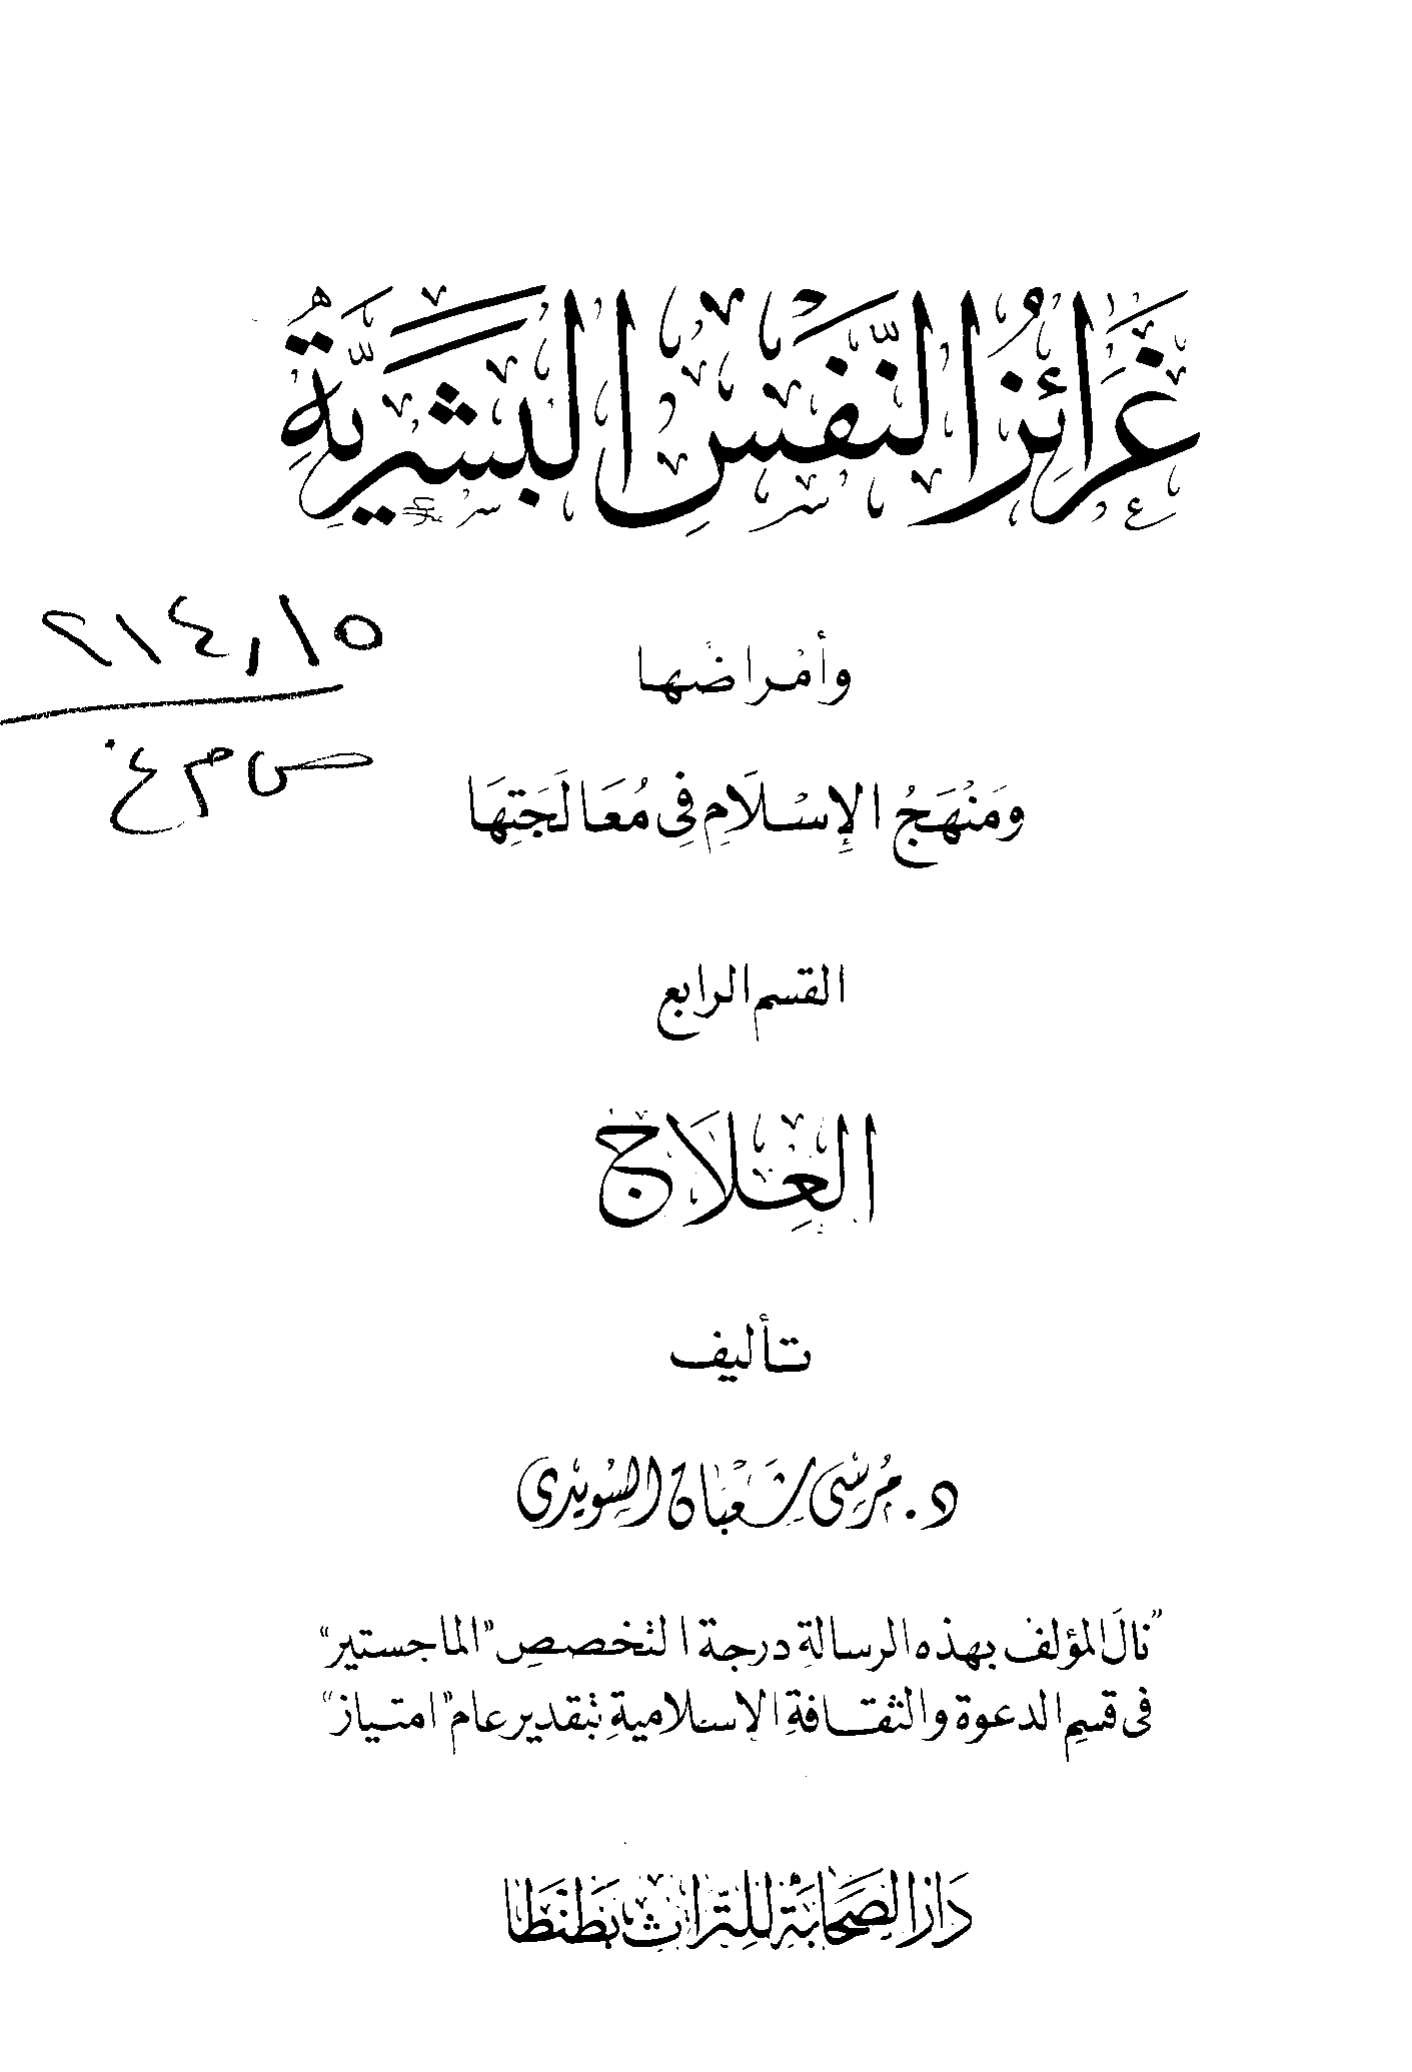 غَرَائِزُ النَّفْسِ الْبَشَرِيَّةِ
٢١٤,١٥
وأمراضها
ص م غ
ومَنْهَجُ الإِسْلَامِ فِى مُعَالَجَتِهَا
القسم الرابع
العِلاج
تأليف
د. مُرسى شَعْبان السُّويدى
"نالَ المؤلف بهذه الرسالةِ درجة التخصصِ "الماجستير"
فى قسمِ الدعوة والثقافةِ الإسلاميةِ بتقدير عام "امتياز"
دَارُ الصَّحَابَةِ لِلتُّرَاثِ بطَنْطَا